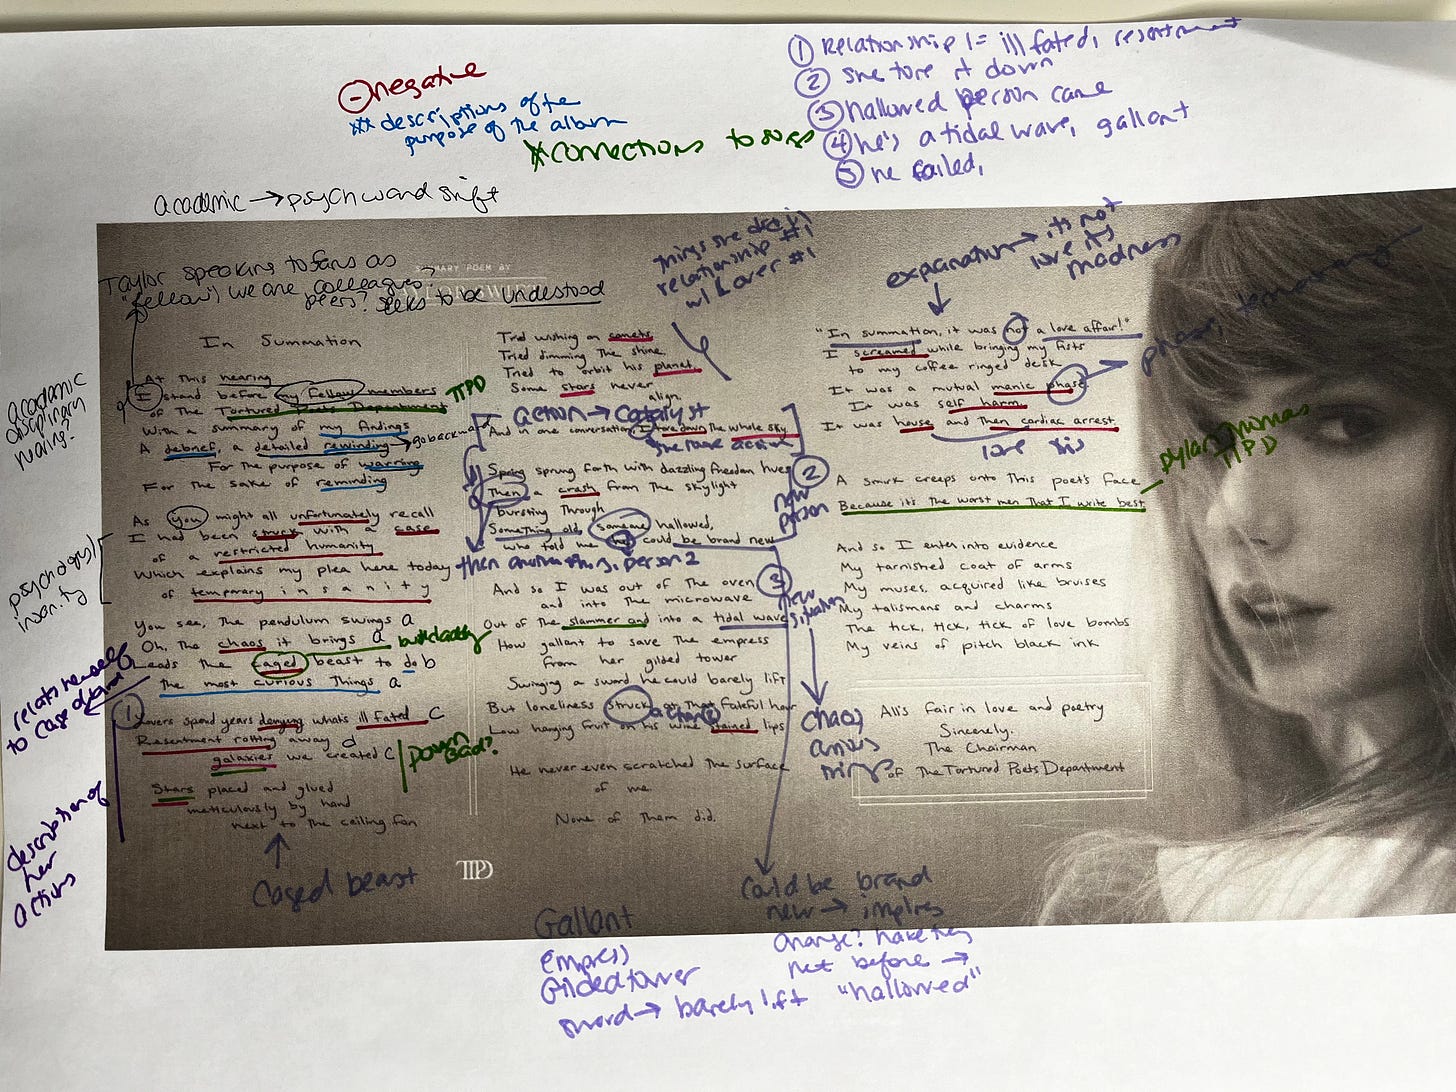 ① Relationship 1= ill fated, resentment
② she tore it down
③ hallowed person came
④ he's a tidal wave, gallant
⑤ he failed,
⊖ negative
*** descriptions of the
purpose of the album
* connections to songs
academic → psych ward shift
Taylor speaking to fans as
"fellow") we are colleagues,
peers? seeks to be understood
SUMMARY POEM BY
things she did in
relationship #1
w/ Lover #1
explanation → it's not
love its
madness
academic
disciplinary
hearing?
psychosis/
insanity
relates herself
to case of
description of
her
actions
In Summation
At this hearing
I stand before my fellow members
of the Tortured Poets Department
TTPD
With a summary of my findings
A debrief, a detailed rewinding
→ go backward
For the purpose of warning
For the sake of reminding
As you might all unfortunately recall
I had been struck with a case
of a restricted humanity
Which explains my plea here today
of temporary i n s a n i t y
You see, the pendulum swings a
Oh, the chaos it brings a
but daddy
Leads the caged beast to do b
the most curious things a
①
Lovers spend years denying what's ill fated C
Resentment rotting away d
galaxies we created C
Down
Bad?
Stars placed and glued
meticulously by hand
next to the ceiling fan
Caged beast
TTPD
Tried wishing on comets
Tried dimming the shine
Tried to orbit his planet
Some stars never
align
action → catalyst
And in one conversation, I tore down the whole sky
she took action
Spring sprung forth with dazzling freedom hues
②
new
person
Then a crash from the skylight
bursting through
Something old, someone hallowed,
who told me he could be brand new
then another thing, person 2
And so I was out of the oven
and into the microwave
③
new
situation
Out of the slammer and into a tidal wave
How gallant to save the empress
from her gilded tower
Swinging a sword he could barely lift
But loneliness struck at that fateful hour
action
Low hanging fruit on his wine stained lips
He never even scratched the surface
of me.
None of them did.
chaos
"In summation, it was not a love affair!"
I screamed while bringing my fists
to my coffee ringed desk
It was a mutual manic phase
phase, temporary
It was self harm
It was house and then cardiac arrest
love this
A smirk creeps onto this poet's face
Because it's the worst men that I write best
dylan thomas
TTPD
And so I enter into evidence
My tarnished coat of arms
My muses, acquired like bruises
My talismans and charms
The tick, tick, tick of love bombs
My veins of pitch black ink
All's fair in love and poetry
Sincerely,
The Chairman
of The Tortured Poets Department
Gallant
empress
Gilded tower
sword → barely lift
Could be brand
new → implies
change? have they
met before →
"hallowed"